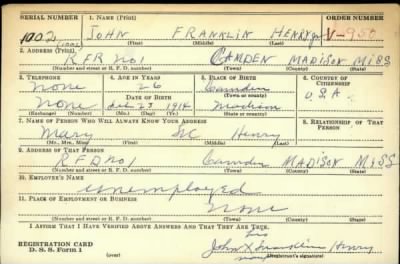 SERIAL NUMBER 1. NAME (Print) ORDER NUMBER
JOHN FRANKLIN HENRY
(First) (Middle) (Last)
2. ADDRESS (Print)
RFR No1 CAMDEN MADISON MISS
(Number and street or R. F. D. number) (Town) (County) (State)
3. TELEPHONE 4. AGE IN YEARS 5. PLACE OF BIRTH 6. COUNTRY OF CITIZENSHIP
none 26 Camden U.S.A.
DATE OF BIRTH (Town or county)
none Feb 23 1914 Madison
(Exchange) (Number) (Mo.) (Day) (Yr.) (State or country)
7. NAME OF PERSON WHO WILL ALWAYS KNOW YOUR ADDRESS 8. RELATIONSHIP OF THAT PERSON
Mary Henry
(Mr., Mrs., Miss) (First) (Middle) (Last)
9. ADDRESS OF THAT PERSON
RFD No1 Camden MADISON MISS
(Number and street or R. F. D. number) (Town) (County) (State)
10. EMPLOYER'S NAME
unemployed
11. PLACE OF EMPLOYMENT OR BUSINESS
none
(Number and street or R. F. D. number) (Town) (County) (State)
I AFFIRM THAT I HAVE VERIFIED ABOVE ANSWERS AND THAT THEY ARE TRUE.
his
REGISTRATION CARD John X Franklin Henry
D. S. S. Form 1 (Registrant's signature)